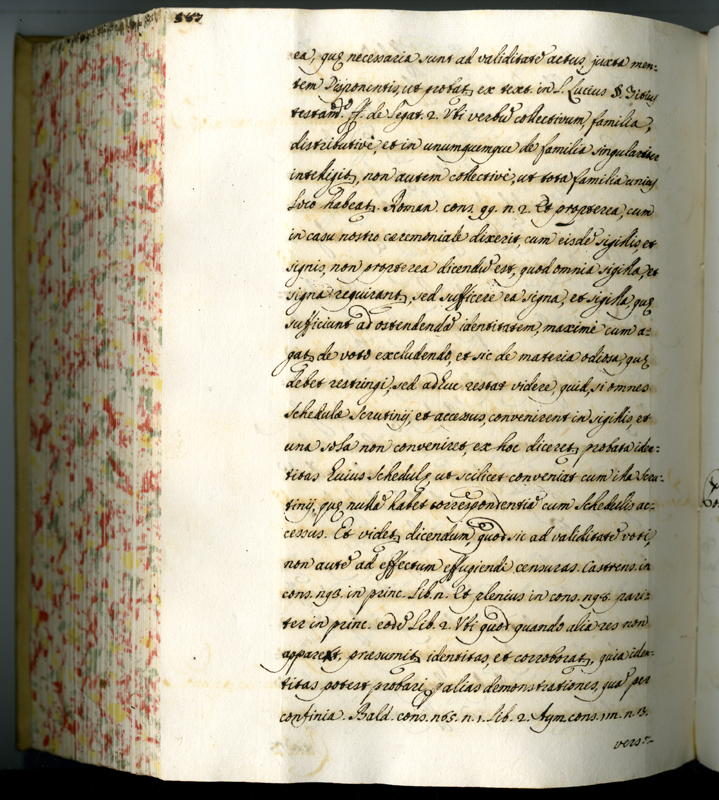 567
ea, quę necessaria sunt ad validitatē actus, juxta men=
tem Disponentis, ut probat, ex text. in L. Lucius §. Titius
testam.º ff. de Legat. 2. Vti verbū collectivum familia,
distributivè, et in unumquemque de familia singulariter
intelligit, non autem collectivè, ut tota familia unius
loco habeat. Roman. cons. 99. n. 2. Et propterea, cum
in casu nostro caeremoniale dixerit, cum eisdē sigillis et
signis, non propterea dicendū est, quod omnia sigilla, et
signa requirant, sed sufficere ea signa, et sigilla, quę
sufficiunt ad ostendendā identitatem, maximè cum a=
gat, de voto excludendo, et sic de materia odiosa, quę
debet restringi, sed adhuc restat videre, quid, si omnes
schedulae scrutinij, et accessus, convenirent in sigillis, et
una sola non conveniret, ex hoc diceret, probata iden=
titas huius schedulę, ut scilicet conveniat cum illa scru=
tinij, quę nullā habet correspondentiā cum schedulis ac=
cessus. Et videt, dicendum, quod sic ad validitatē voti,
non autē ad effectum effugiendi censuras. Castrens. in
cons. 193. in princ. lib. 1. Et plenius in cons. 198. pari=
ter in princ. eodē Lib. 2. Vti quod quando alia res non
apparet, praesumit, identitas, et corroborat, quia iden=
titas potest probari, p alias demonstrationes, quā per
confinia. Bald. cons. 165. n. 1. Lib. 2. Aym. cons. 111. n. 13.
vers.